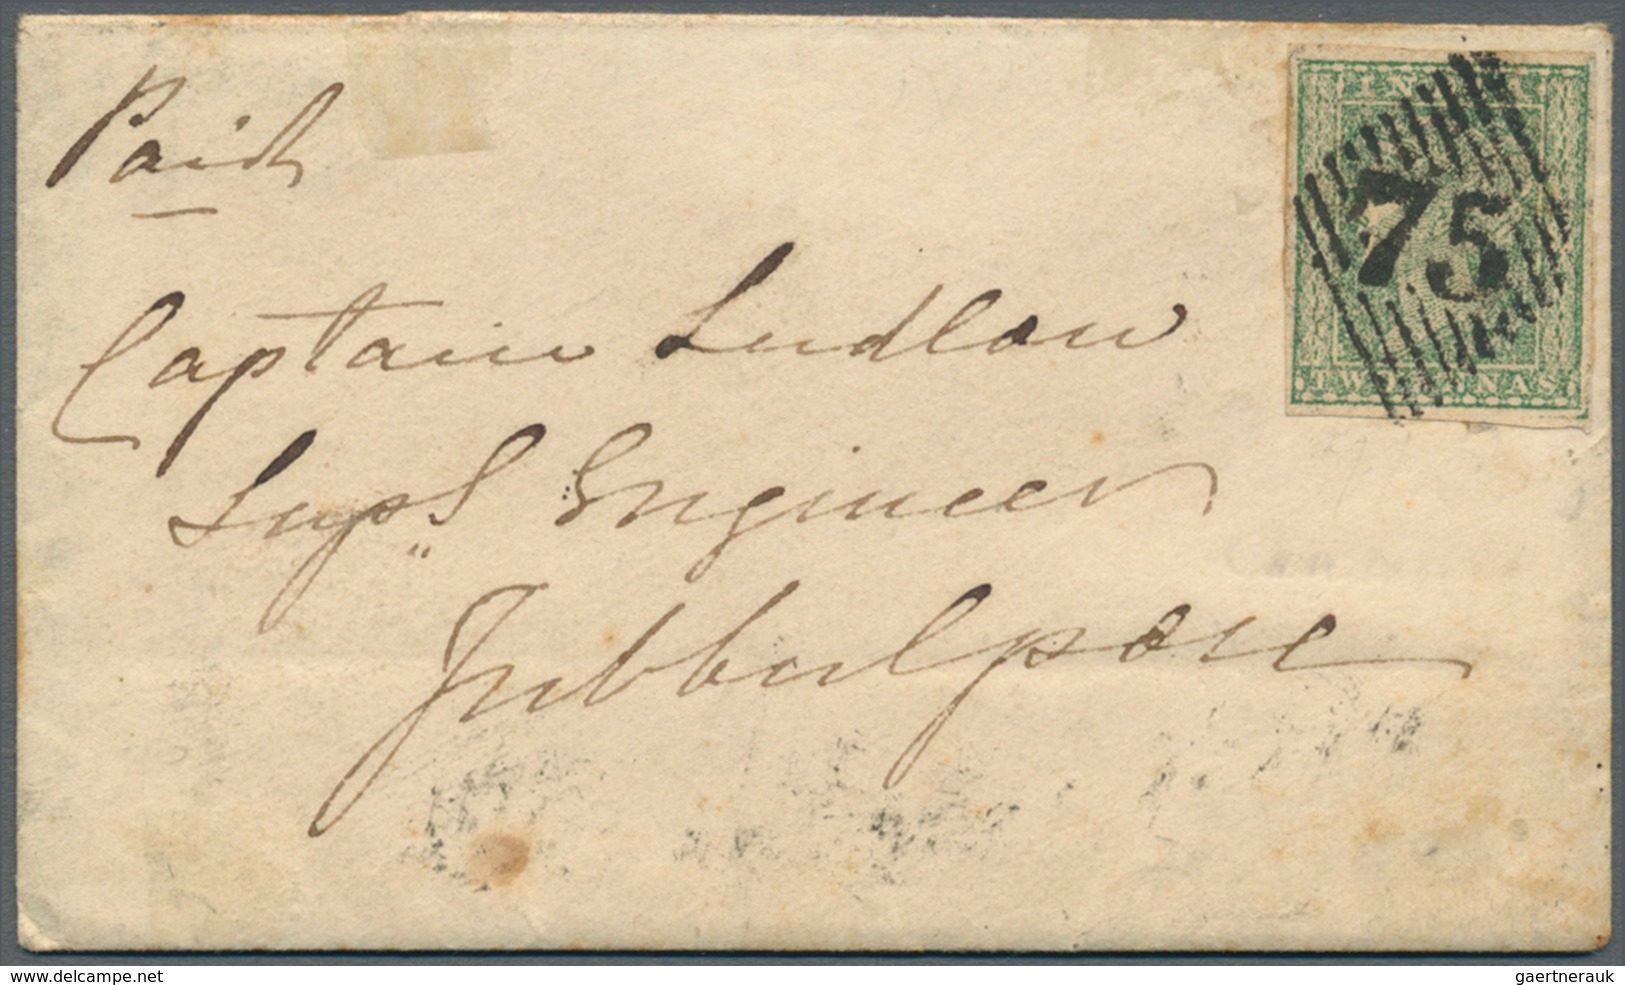 Paid
INDIA
75
TWO ANNAS
Captain Ludlow
Supt Engineer
Jubbulpore
www.delcampe.net
gaertnerauk